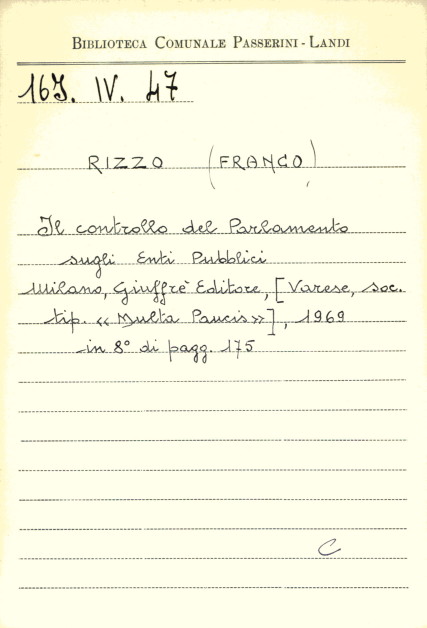 BIBLIOTECA COMUNALE PASSERINI - LANDI
16J. IV. 47
RIZZO (FRANCO)
Il controllo del Parlamento
sugli Enti Pubblici
Milano, Giuffrè Editore, [Varese, soc.
tip. «Multa Paucis»], 1969
in 8° di pagg. 175
C